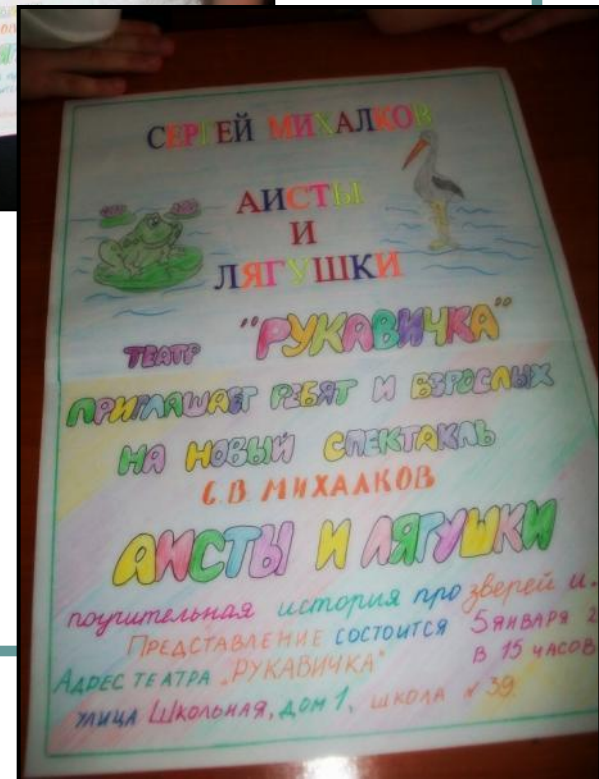 СЕРГЕЙ МИХАЛКОВ
АИСТЫ
И
ЛЯГУШКИ
ТЕАТР "РУКАВИЧКА"
ПРИГЛАШАЕТ РЕБЯТ И ВЗРОСЛЫХ
НА НОВЫЙ СПЕКТАКЛЬ
С.В. МИХАЛКОВ
АИСТЫ И ЛЯГУШКИ
поучительная история про зверей и
ПРЕДСТАВЛЕНИЕ СОСТОИТСЯ 5 ЯНВАРЯ 2
В 15 ЧАСОВ
АДРЕС ТЕАТРА „РУКАВИЧКА"
УЛИЦА ШКОЛЬНАЯ, ДОМ 1, ШКОЛА № 39